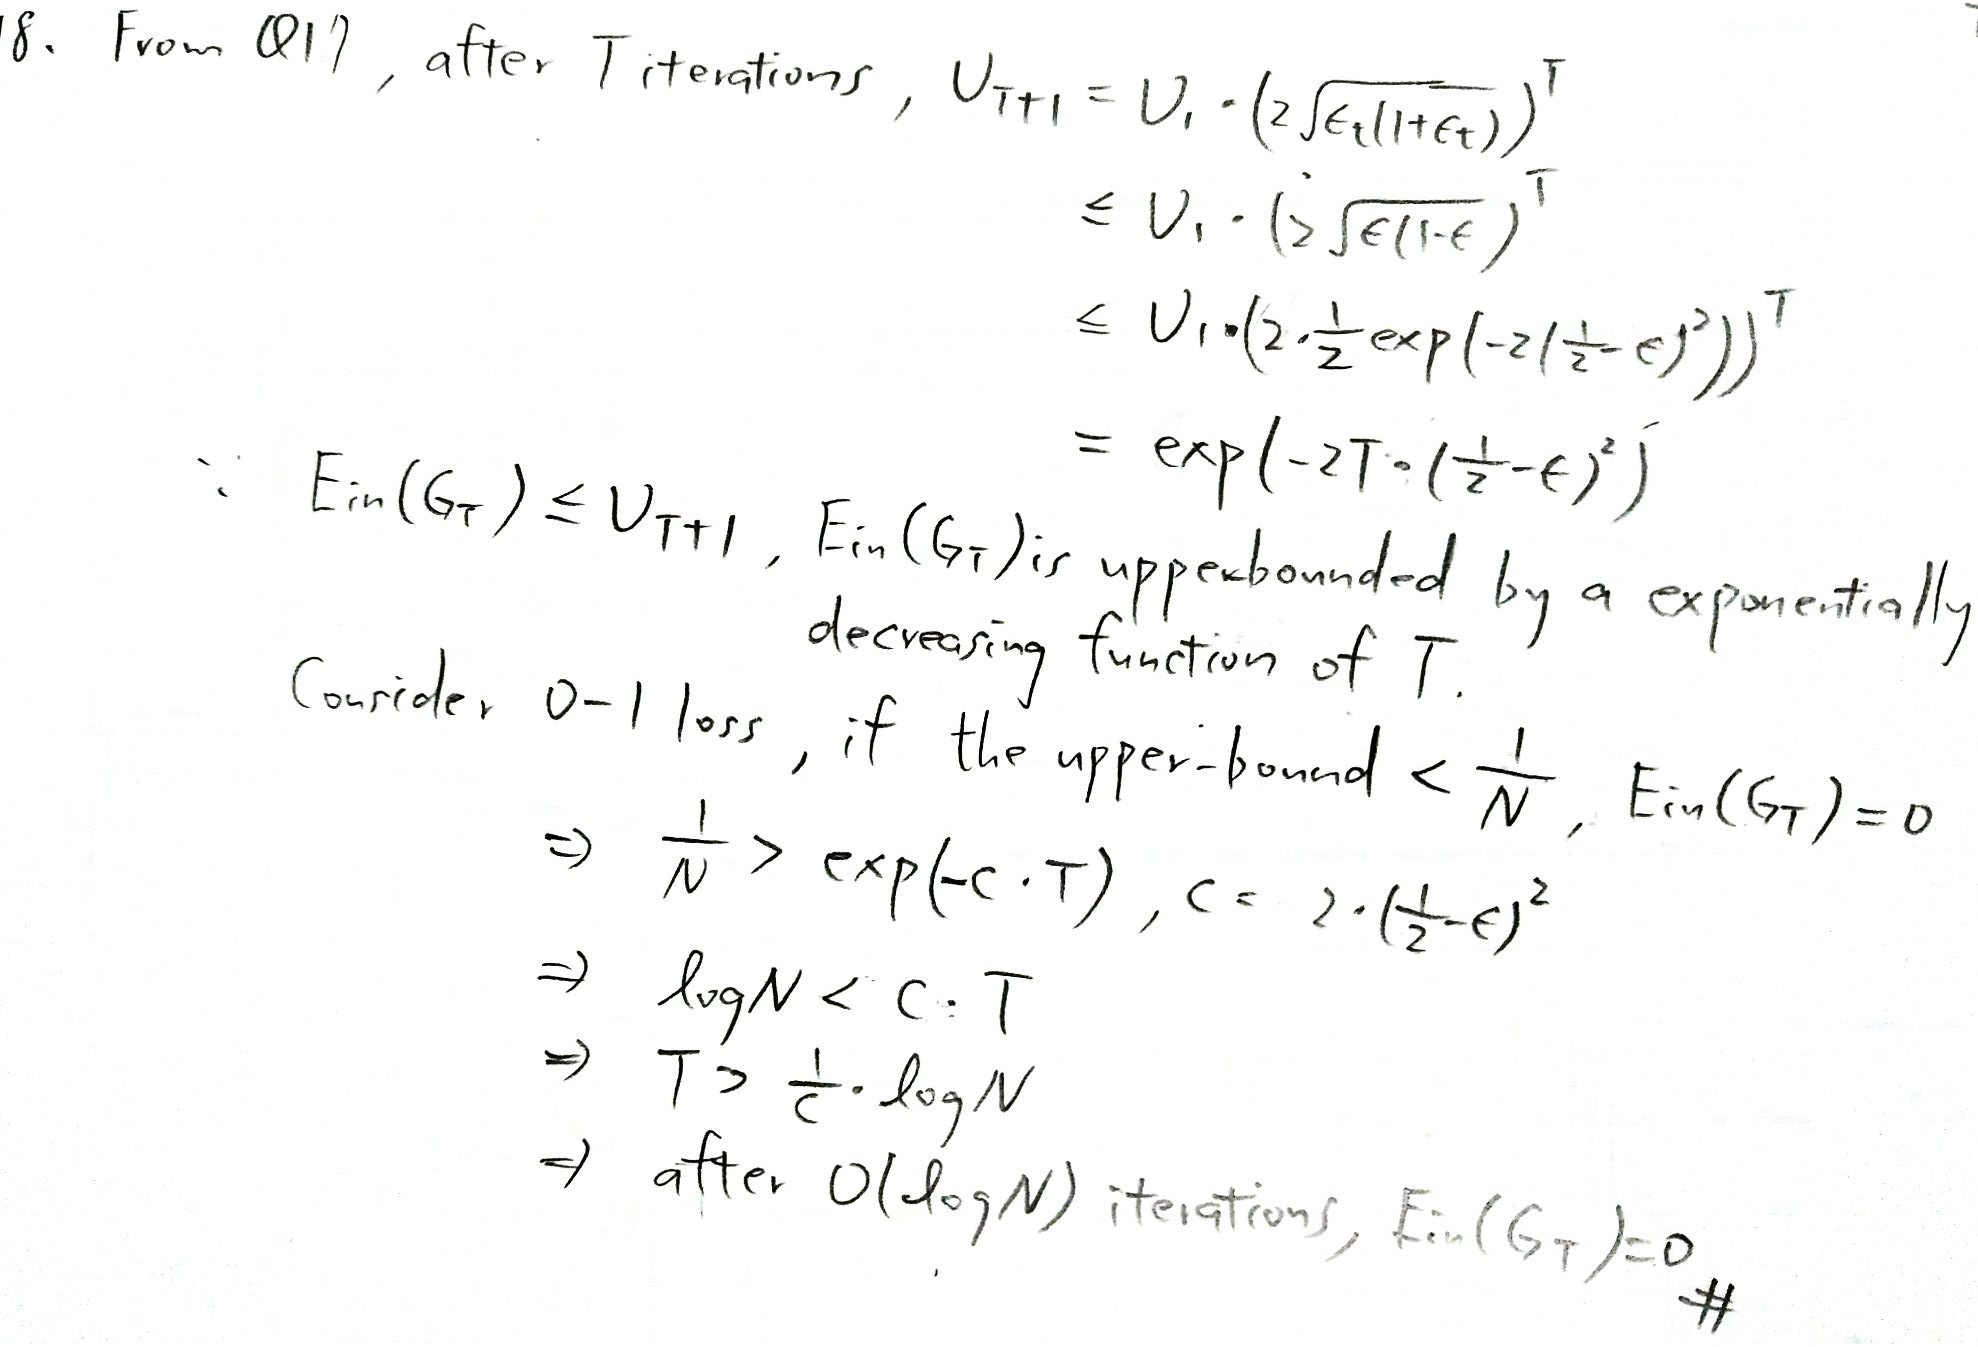 18. From Q17, after T iterations, U_{T+1} = U_1 · (2√(ϵ_t(1+ϵ_t)))^T
≤ U_1 · (2√(ϵ(1-ϵ))^T
≤ U_1 · (2 · 1/2 exp(-2(1/2 - ϵ)^2))^T
= exp(-2T · (1/2 - ϵ)^2)
∵ Ein(G_T) ≤ U_{T+1}, Ein(G_T) is upperbounded by a exponentially
decreasing function of T.
Consider 0-1 loss, if the upper-bound < 1/N, Ein(G_T) = 0
⇒ 1/N > exp(-c · T), c = 2 · (1/2 - ϵ)^2
⇒ log N < c · T
⇒ T > 1/c · log N
⇒ after O(log N) iterations, Ein(G_T) = 0 #